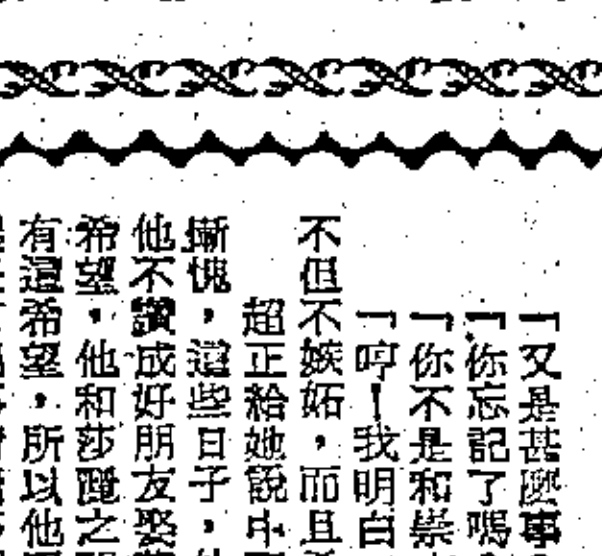 「又是甚麼事
「你忘記了嗎
「你不是和崇
「哼！我明白
不但不嫉妬，而且
超正給她說中
慚愧，這些日子，
他不讚成好朋友娶
希望，他和莎麗之
有這希望，所以他